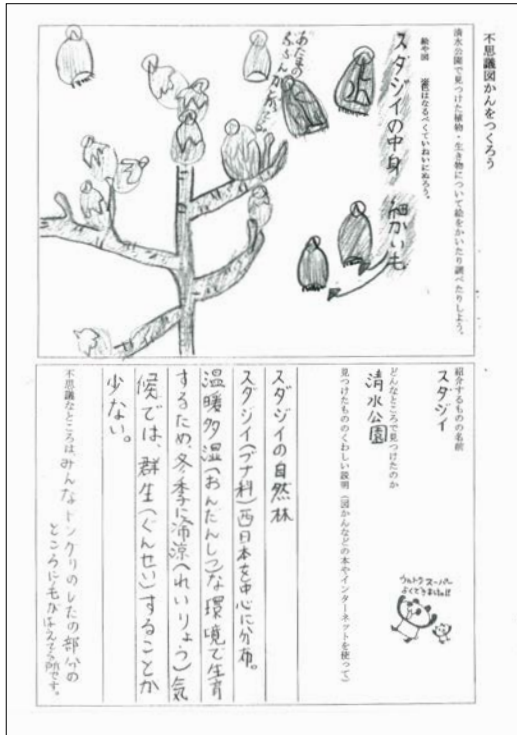 不思議図かんをつくろう
清水公園で見つけた植物・生き物について絵をかいたり調べたりしよう。
絵や図
はなるべくていねいにぬろう。
スダジイの中身
細かいも
あたまの
紹介するものの名前
スダジイ
どんなところで見つけたのか
清水公園
見つけたもののくわしい説明（図かんなどの本やインターネットを使って）
ウルトラスーパー
よくできました!!
スダジイの自然林
スダジイ(ブナ科)西日本を中心に分布。
温暖多湿(おんだんしつ)な環境で生育
するため、冬季に冷涼(れいりょう)気
候では、群生(ぐんせい)することか
少ない。
不思議なところは、みんなドングリのしたの部分の
ところに毛がはえてる所です。